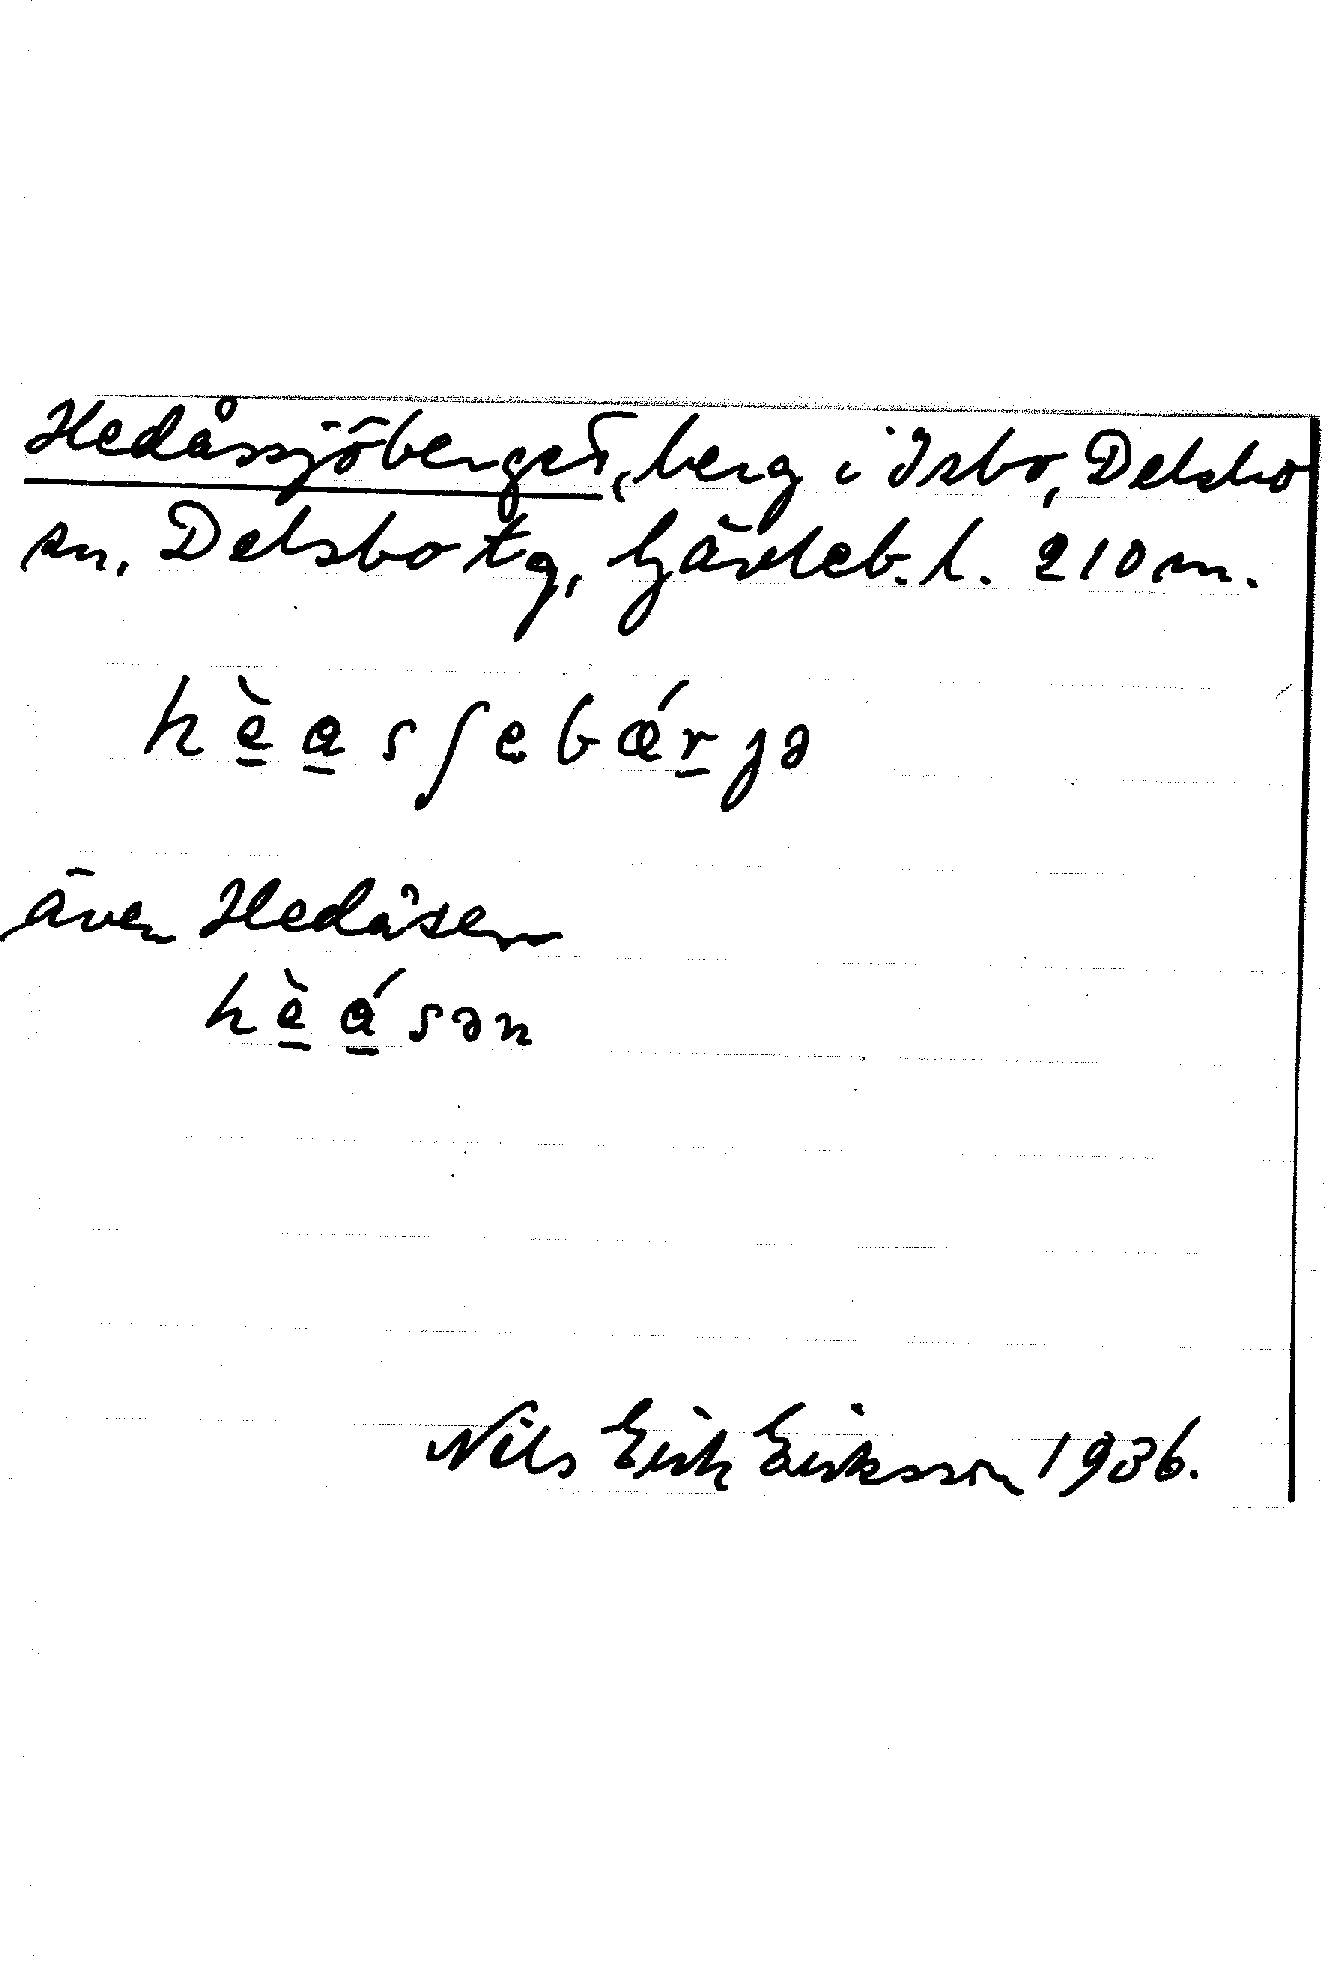 Hedåssjöberget, berg i Isbo, Delsbo
sn, Delsbo tg, Gävleb. l. 210 m.
hè̱a̱sʃebǽṟjə
även Hedåsen
hè̱á̱sən
Nils Erik Eriksson 1936.